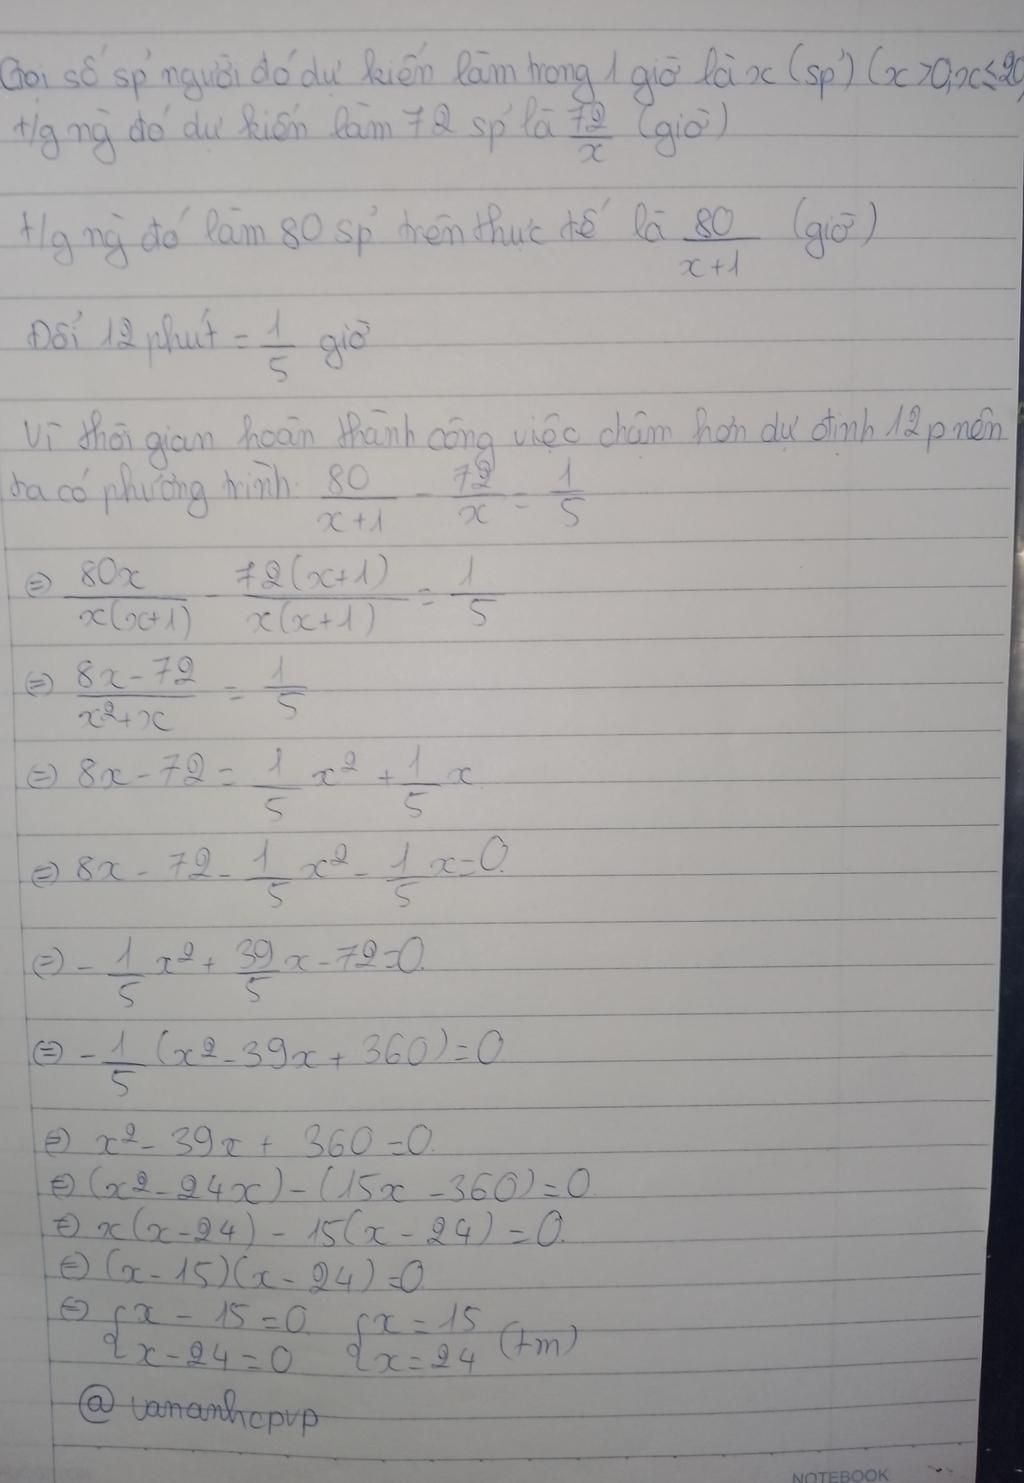 Gọi số sp người đó dự kiến làm trong 1 giờ là x (sp) (x>0, x≤20
t/g ng đó dự kiến làm 72 sp là 72/x (giờ)
t/g ng đó làm 80 sp trên thực tế là 80/(x+1) (giờ)
Đổi 12 phút = 1/5 giờ
Vì thời gian hoàn thành công việc chậm hơn dự định 12p nên
ta có phương trình: 80/(x+1) - 72/x = 1/5
⇔ 80x/(x(x+1)) - 72(x+1)/(x(x+1)) = 1/5
⇔ (8x-72)/(x²+x) = 1/5
⇔ 8x - 72 = 1/5 x² + 1/5 x
⇔ 8x - 72 - 1/5 x² - 1/5 x = 0
⇔ - 1/5 x² + 39/5 x - 72 = 0
⇔ - 1/5 (x² - 39x + 360) = 0
⇔ x² - 39x + 360 = 0
⇔ (x² - 24x) - (15x - 360) = 0
⇔ x(x-24) - 15(x-24) = 0
⇔ (x-15)(x-24) = 0
⇔ { x - 15 = 0 { x = 15
x - 24 = 0 x = 24 (tm)
@vananhcpvp
NOTEBOOK